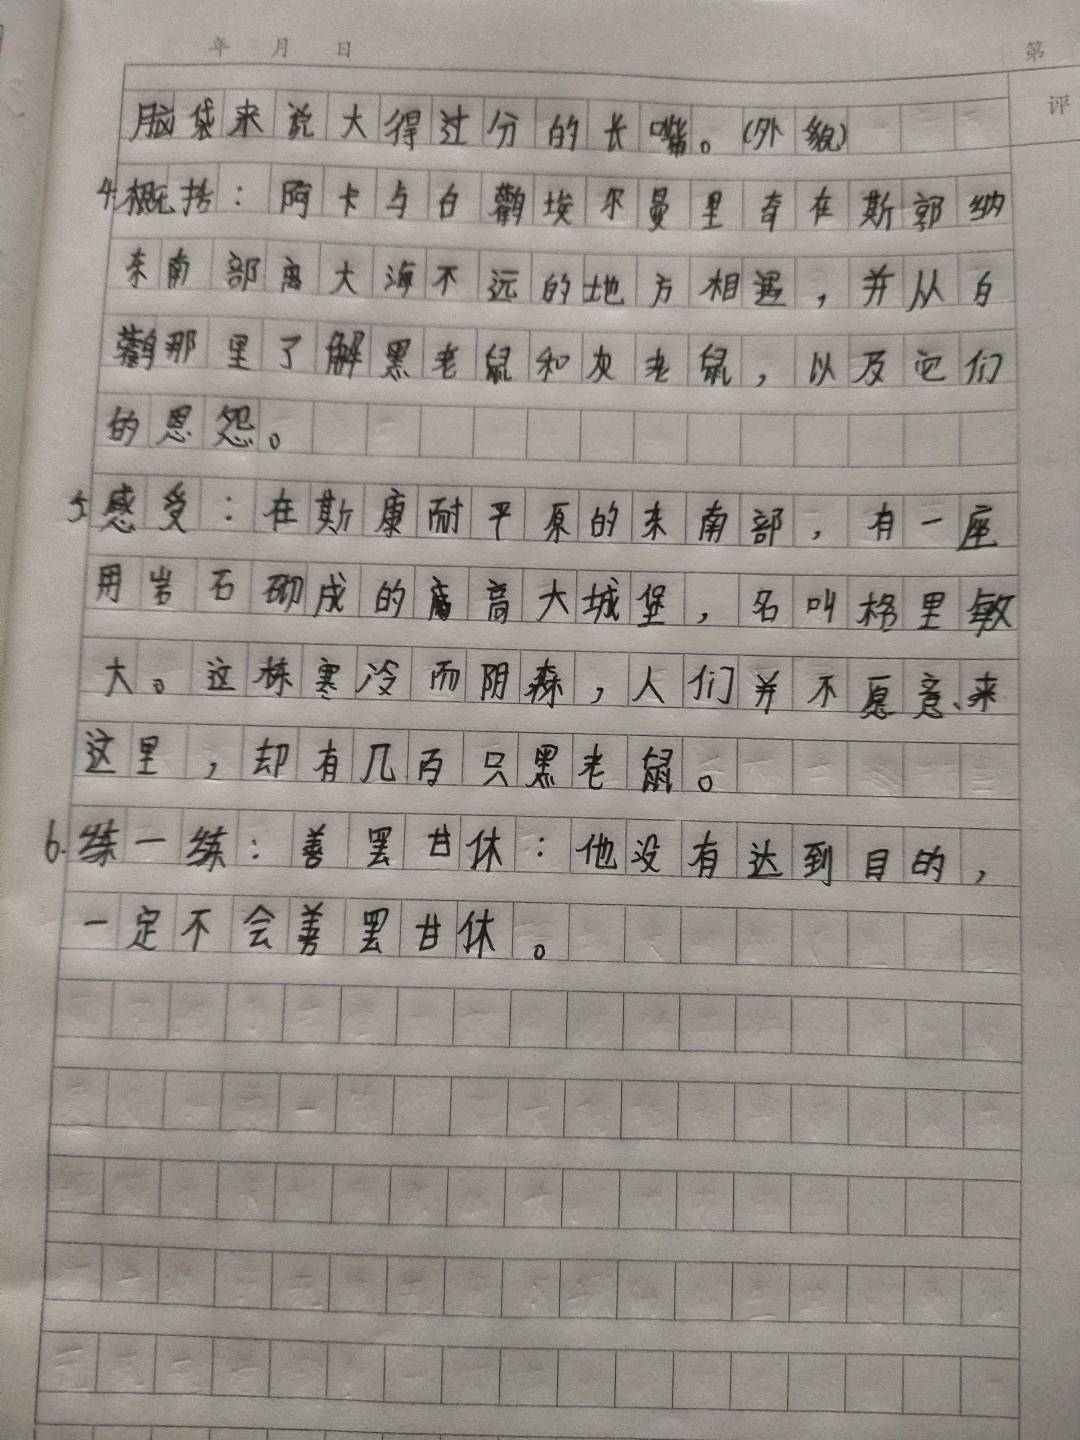 年 月 日
第
评
脑袋来说大得过分的长嘴。(外貌)
4.概括：阿卡与白鹳埃尔曼里奇在斯郭纳
东南部离大海不远的地方相遇，并从白
鹳那里了解黑老鼠和灰老鼠，以及它们
的恩怨。
5.感受：在斯康耐平原的东南部，有一座
用岩石砌成的高大城堡，名叫格里敏
大。这栋寒冷而阴森，人们并不愿意、来
这里，却有几百只黑老鼠。
6.练一练：善罢甘休：他没有达到目的，
一定不会善罢甘休。